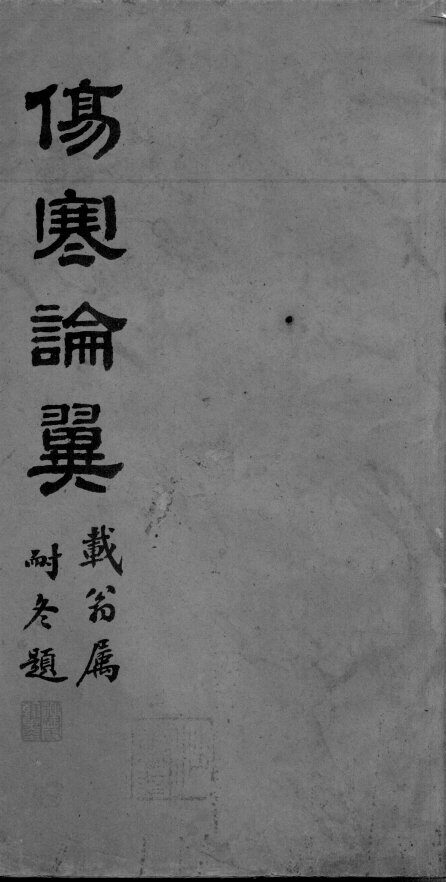 傷寒論翼
載翁属
耐冬題